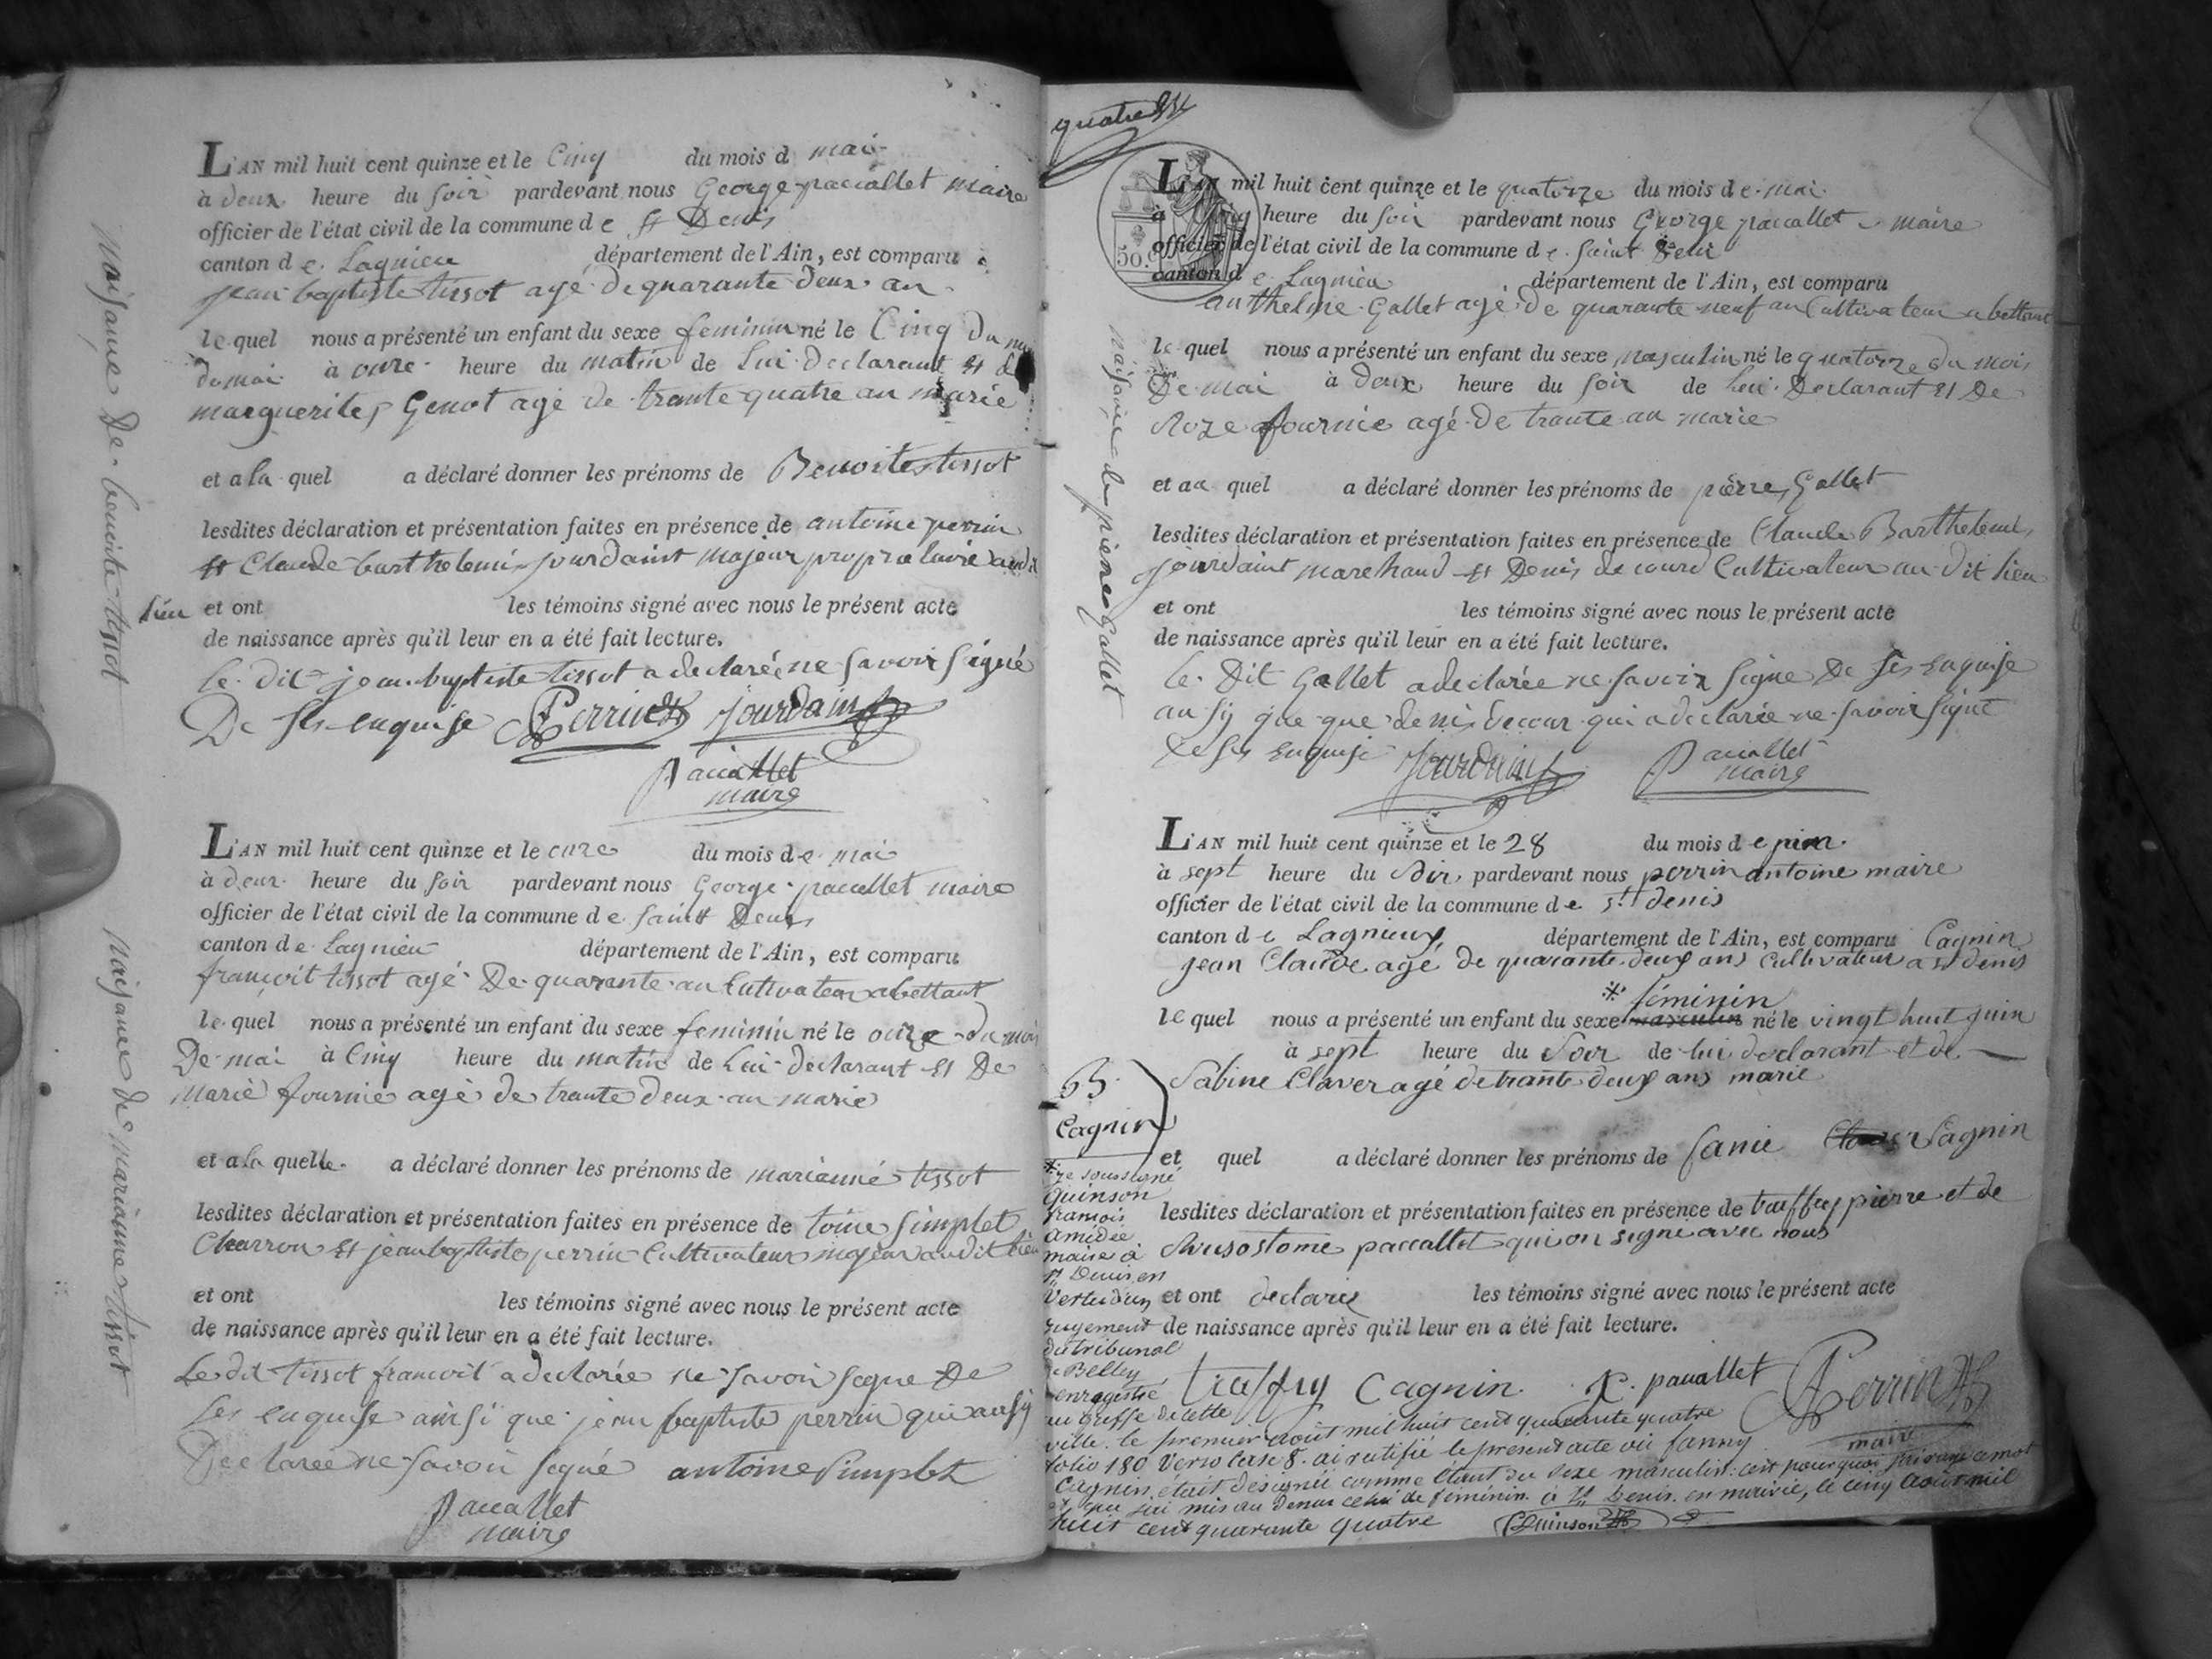 L'AN mil huit cent quinze et le Cinq du mois d mai
à deux heure du soir pardevant nous George paccallet maire
officier de l'état civil de la commune d e St Denis
canton d e Lagnieu département de l'Ain, est comparu
jean baptiste tissot agé de quarante deux an
le quel nous a présenté un enfant du sexe feminin né le Cinq du
de mai à onze heure du matin de Lui declarant et de
marguerite Genot agé de trante quatre an marié
et a la quel a déclaré donner les prénoms de Benoite tissot
lesdites déclaration et présentation faites en présence de antoine perrin
et Claude barthelemi jourdaint majeur proprietaire audit
lieu et ont les témoins signé avec nous le présent acte
de naissance après qu'il leur en a été fait lecture.
le dit jean baptiste tissot a declarée ne savoir signé
De ses enquise Perrin Jourdaint
Paccallet
maire
naisance de benoite tissot
L'AN mil huit cent quinze et le onze du mois d e mai
à deux heure du soir pardevant nous George paccallet maire
officier de l'état civil de la commune d e saint Denis
canton d e Lagnieu département de l'Ain, est comparu
françoit tissot agé De quarante an Cultivateur a bettant
le quel nous a présenté un enfant du sexe feminin né le onze du mois
De mai à Cinq heure du matin de Lui declarant et De
Marie fournie agé de trante deux an marie
et a la quelle a déclaré donner les prénoms de marianne tissot
lesdites déclaration et présentation faites en présence de toine simplet
Charron et jean baptiste perrin Cultivateur majeur audit lieu
et ont les témoins signé avec nous le présent acte
de naissance après qu'il leur en a été fait lecture.
Le dit tissot francoit a declarée ne savoir signe De
ses enquise ainsi que jean baptiste perrin qui ausy
Declarée ne savoir signé antoine simplet
Paccallet
maire
naisance de marianne tissot
quatre
50.
L'AN mil huit cent quinze et le quatorze du mois d e mai
à Cinq heure du soir pardevant nous George paccallet maire
officier de l'état civil de la commune d e saint Denis
canton d e Lagnieu département de l'Ain, est comparu
anthelme Gallet agé de quarante neuf an Cultivateur a bettant
le quel nous a présenté un enfant du sexe masculin né le quatorze du mois
De mai à deux heure du soir de Lui Declarant et De
Roze fournie agé de trante an marie
et au quel a déclaré donner les prénoms de pierre Gallet
lesdites déclaration et présentation faites en présence de Claude Barthelemi
jourdaint marchand et Denis de cour Cultivateur au dit lieu
et ont les témoins signé avec nous le présent acte
de naissance après qu'il leur en a été fait lecture.
Le Dit Gallet a declarée ne savoir signe De ses enquise
ausy que que denis decour qui a declarée ne savoir signé
de ses enquise Jourdaint Paccallet
maire
naisance de pierre Gallet
L'AN mil huit cent quinze et le 28 du mois d e juin
à sept heure du soir pardevant nous perrin antoine maire
officier de l'état civil de la commune d e st denis
canton d e Lagnieux département de l'Ain, est comparu Cagnin
jean Claude agé de quarante deux ans cultivateur a st denis
* féminin
le quel nous a présenté un enfant du sexe masculin né le vingt huit juin
à sept heure du soir de lui declarant et de
Sabine Claver agé de trante deux ans marie
et quel a déclaré donner les prénoms de fanie Claver Cagnin
lesdites déclaration et présentation faites en présence de truffey pierre et de
Chrusostome paccallet qui on signé avec nous
et ont declaré les témoins signé avec nous le présent acte
de naissance après qu'il leur en a été fait lecture.
Cagnin P. paccallet Perrin
maire
Cagnin
* je soussigné
quinson
francois
amédée
maire à
St Denis en
vertu d'un
jugement
du tribunal
de Belley
enregistré
au greffe de cette
ville le premier août mil huit cent quarante quatre
folio 180 verso case 8. ai rectifié le présent acte où fanny
Cagnin était désignée comme étant du sexe masculin: c'est pourquoi j'ai rayé ce mot
et que j'ai mis au dessus celui de féminin. à St Denis en mairie, le cinq août mil
huit cent quarante quatre Quinson